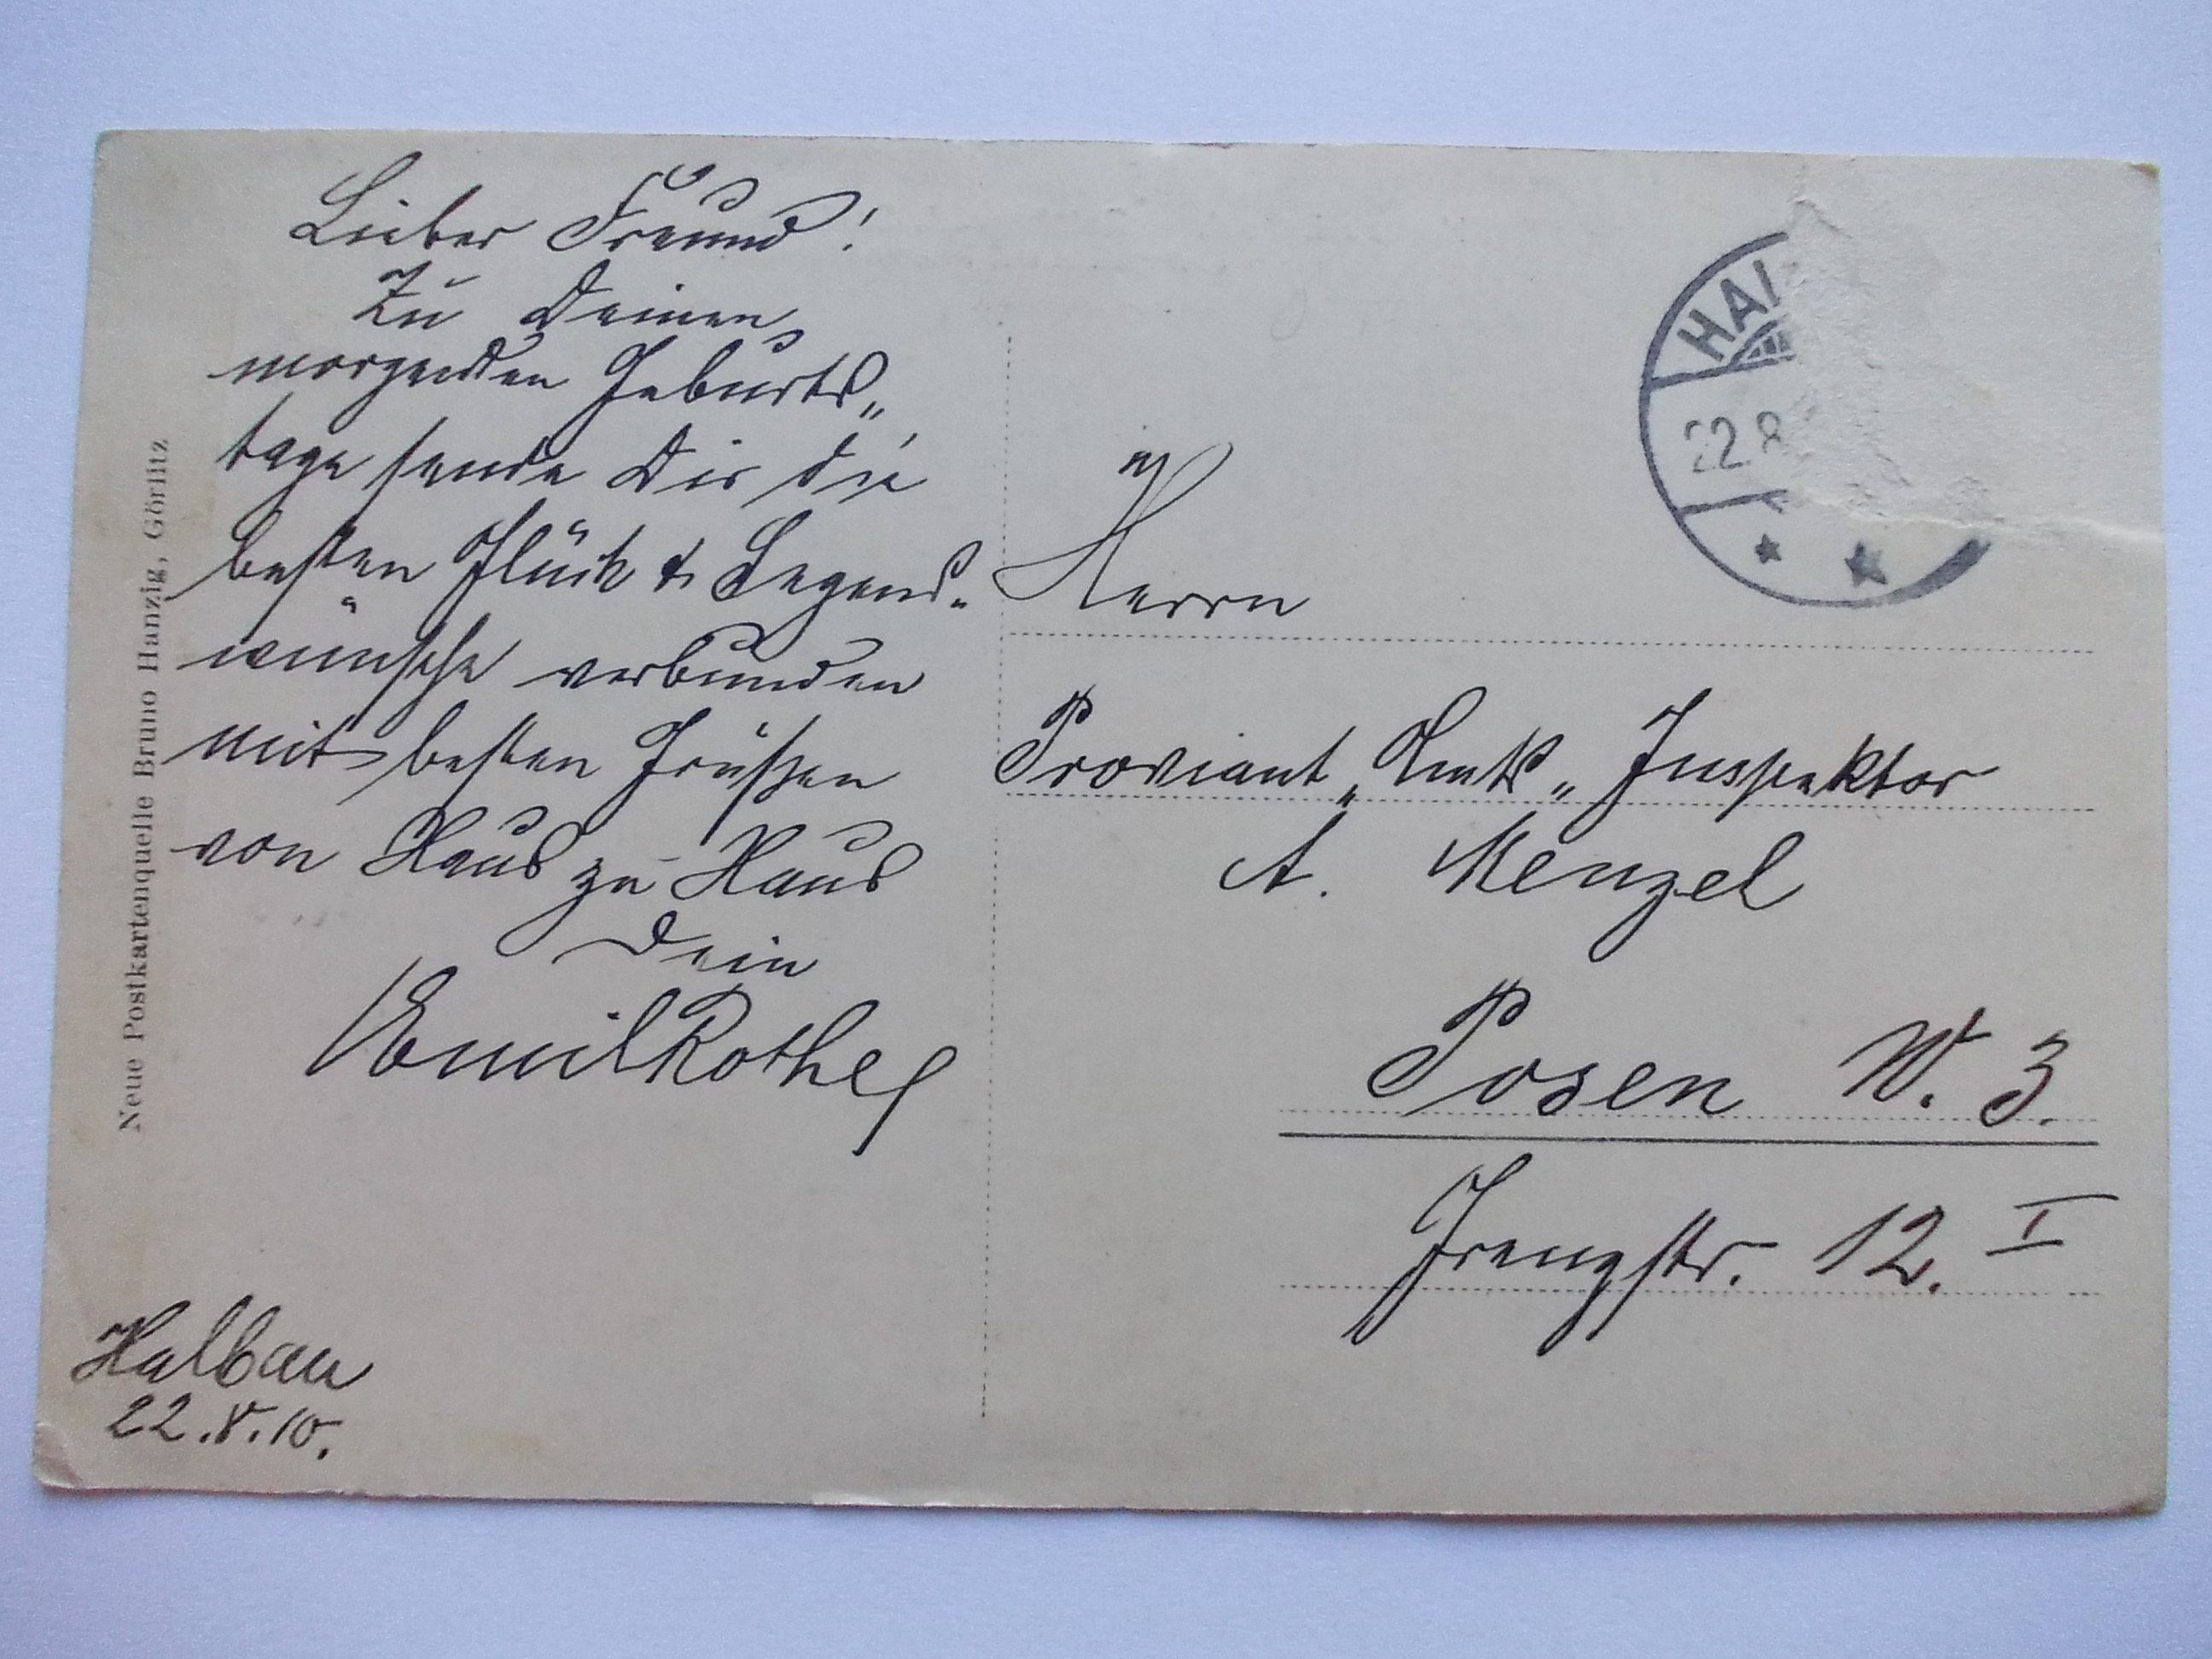 Lieber Freund!
Zu Deinem
morgenden Geburts„
tage sende Dir die
besten Glück & Segens„
wünsche verbunden
mit besten Grüßen
von Haus zu Haus
Dein
Emil Rothe
Halbau
22.8.10.
Neue Postkartenquelle Bruno Hanzig, Görlitz
HAL
22.8
Herrn
Proviant„Amts„Inspektor
A. Menzel
Posen W. 3.
12. I